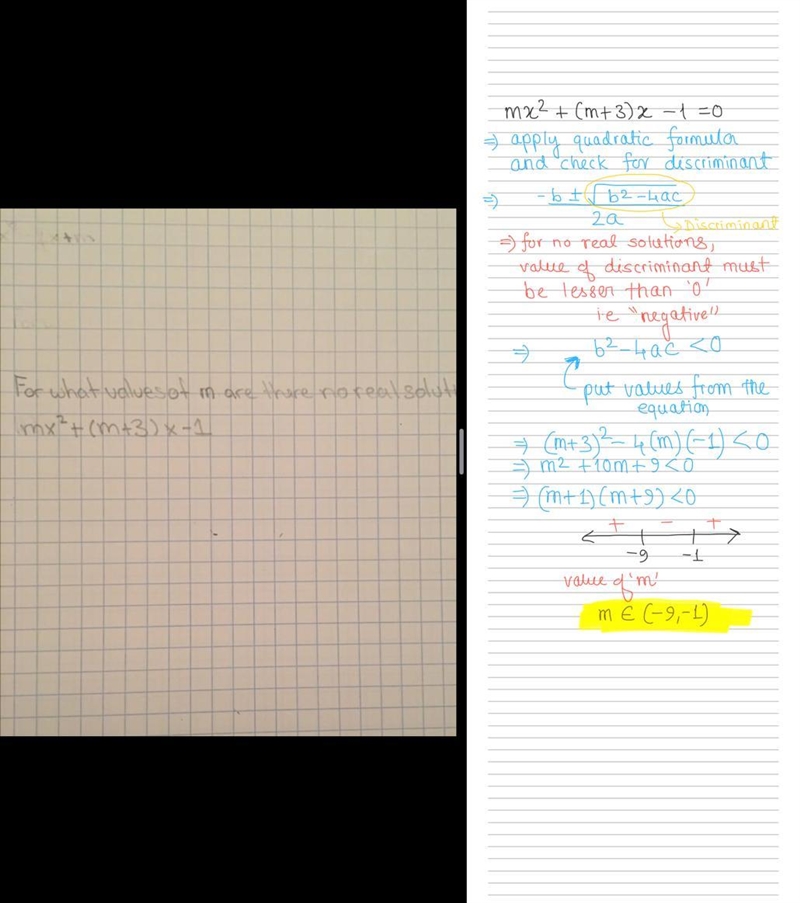 x+m
For what values of m are there no real solut
mx²+(m+3)x-1
mx² + (m+3)x -1 =0
⇒ apply quadratic formula
and check for discriminant
⇒ -b ± √b²-4ac
2a
↳Discriminant
⇒ for no real solutions,
value of discriminant must
be lesser than '0'
ie "negative"
⇒ b²-4ac <0
put values from the
equation
⇒ (m+3)²-4(m)(-1) <0
⇒ m² +10m+9<0
⇒ (m+1)(m+9)<0
+ - +
-9 -1
value of 'm'
m ∈ (-9,-1)